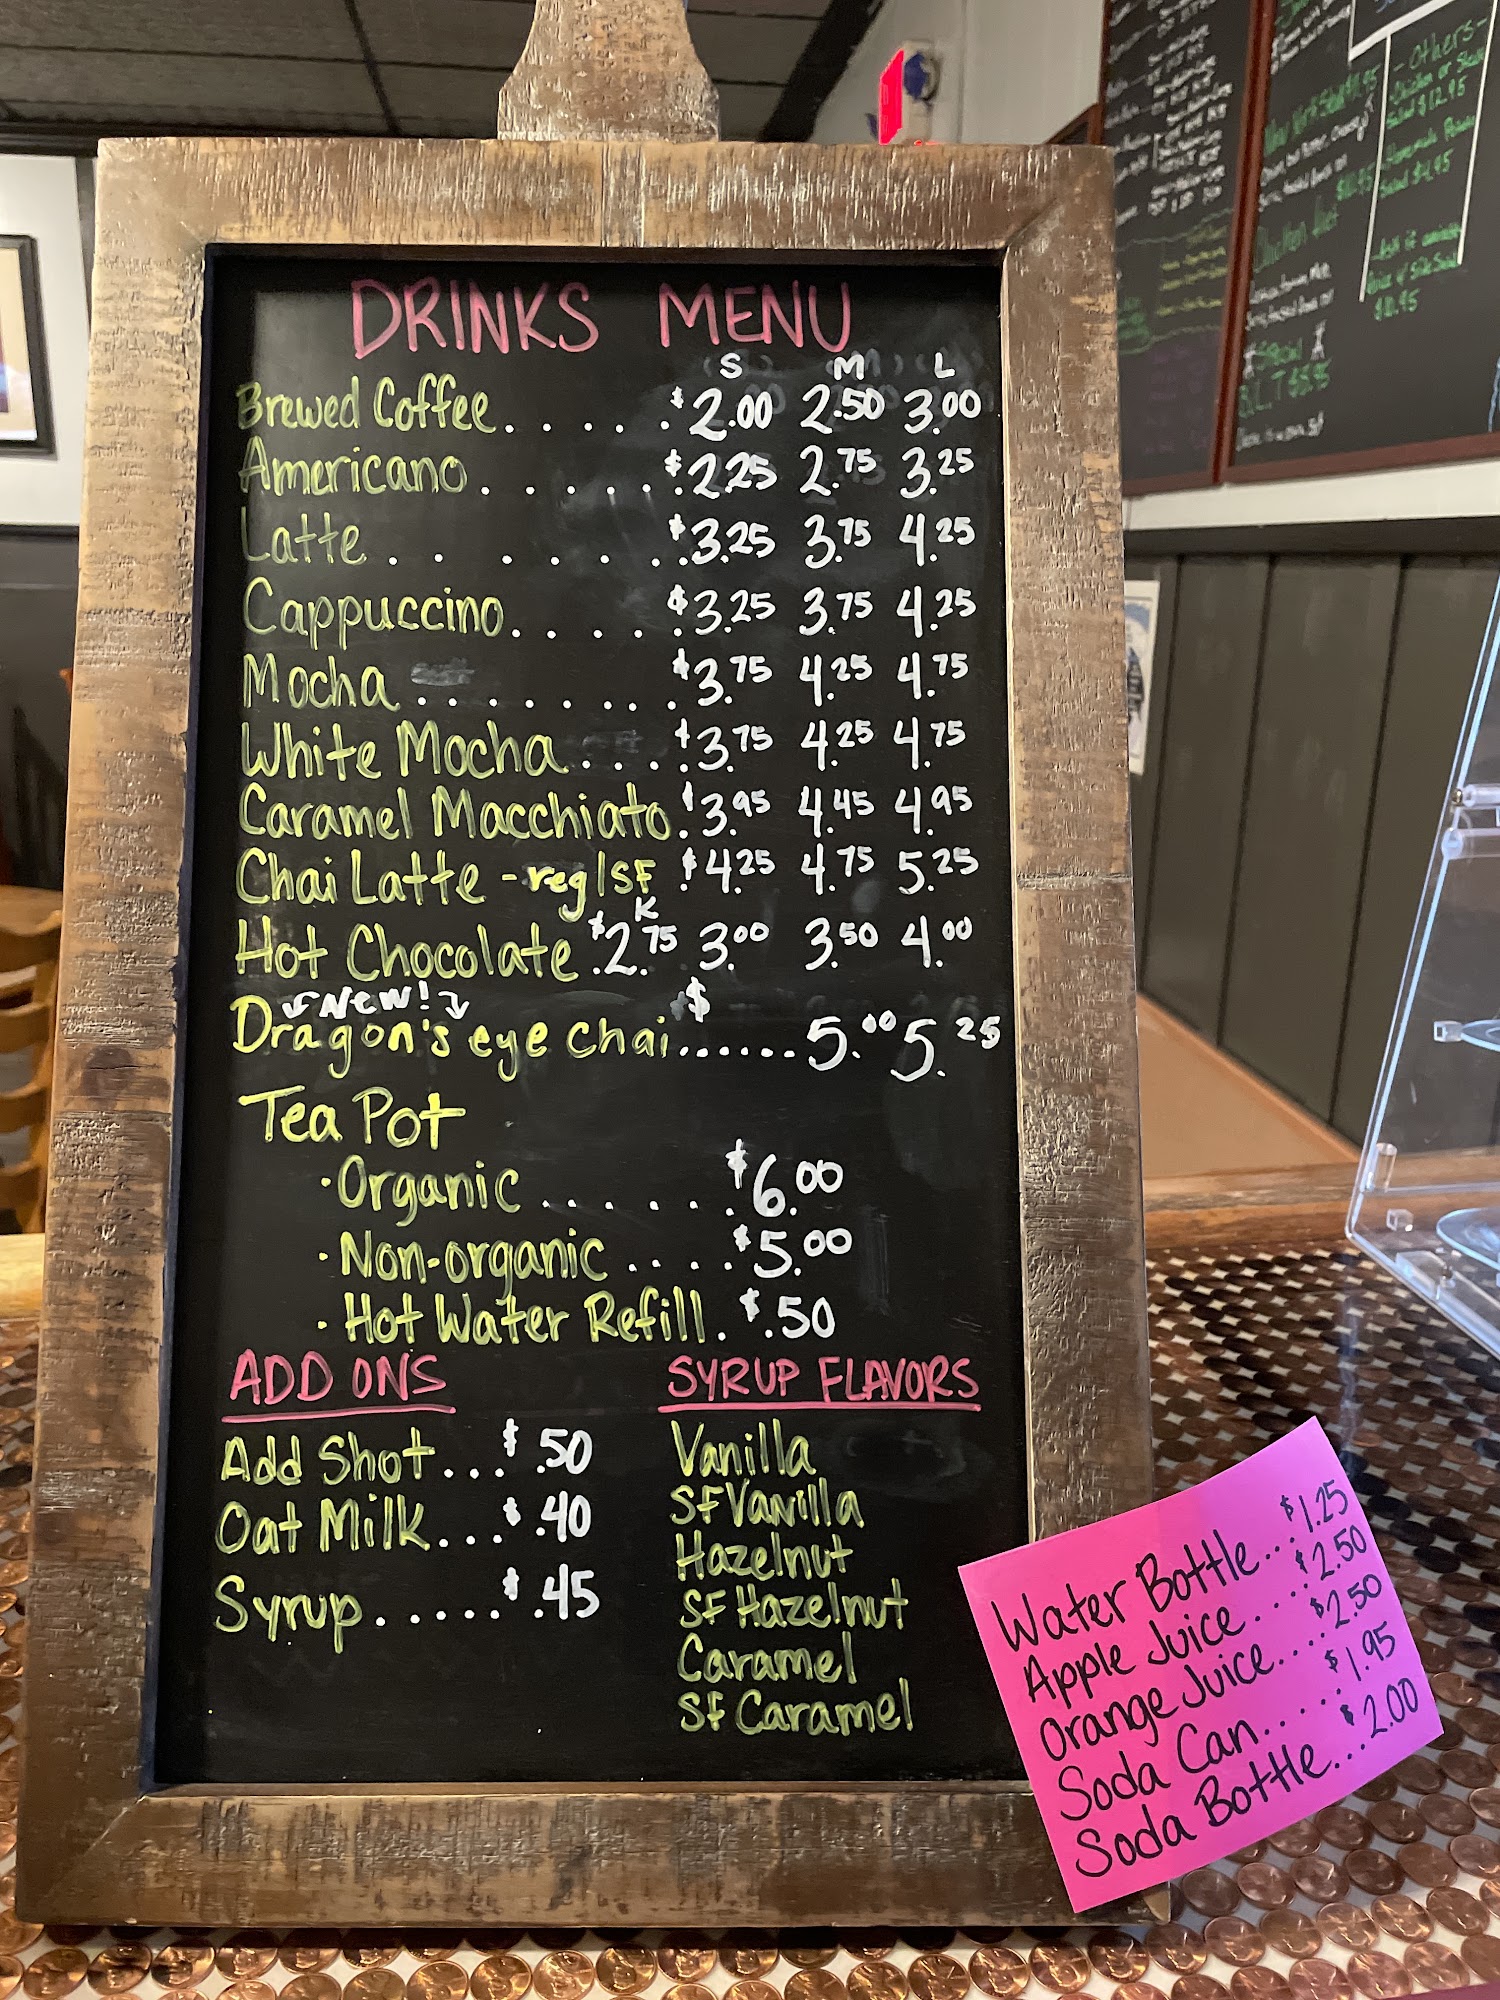 DRINKS MENU
S M L
Brewed Coffee...... $2.00 2.50 3.00
Americano...... $2.25 2.75 3.25
Latte...... $3.25 3.75 4.25
Cappuccino..... $3.25 3.75 4.25
Mocha........ $3.75 4.25 4.75
White Mocha.... $3.75 4.25 4.75
Caramel Macchiato. $3.95 4.45 4.95
Chai Latte - reg/SF. $4.25 4.75 5.25
K
Hot Chocolate. $2.75 3.00 3.50 4.00
New!
Dragon's eye chai...... $ 5.00 5.25
Tea Pot
· Organic....... $6.00
· Non-organic..... $5.00
· Hot Water Refill. $.50
ADD ONS
Add Shot... $.50
Oat Milk... $.40
Syrup..... $.45
SYRUP FLAVORS
Vanilla
SF Vanilla
Hazelnut
SF Hazelnut
Caramel
SF Caramel
Water Bottle... $1.25
Apple Juice.... $2.50
Orange Juice.... $2.50
Soda Can..... $1.95
Soda Bottle... $2.00
-Others-
Salad $12.95
Salad $4.95
$10.95
Special
B.L.T $8.95